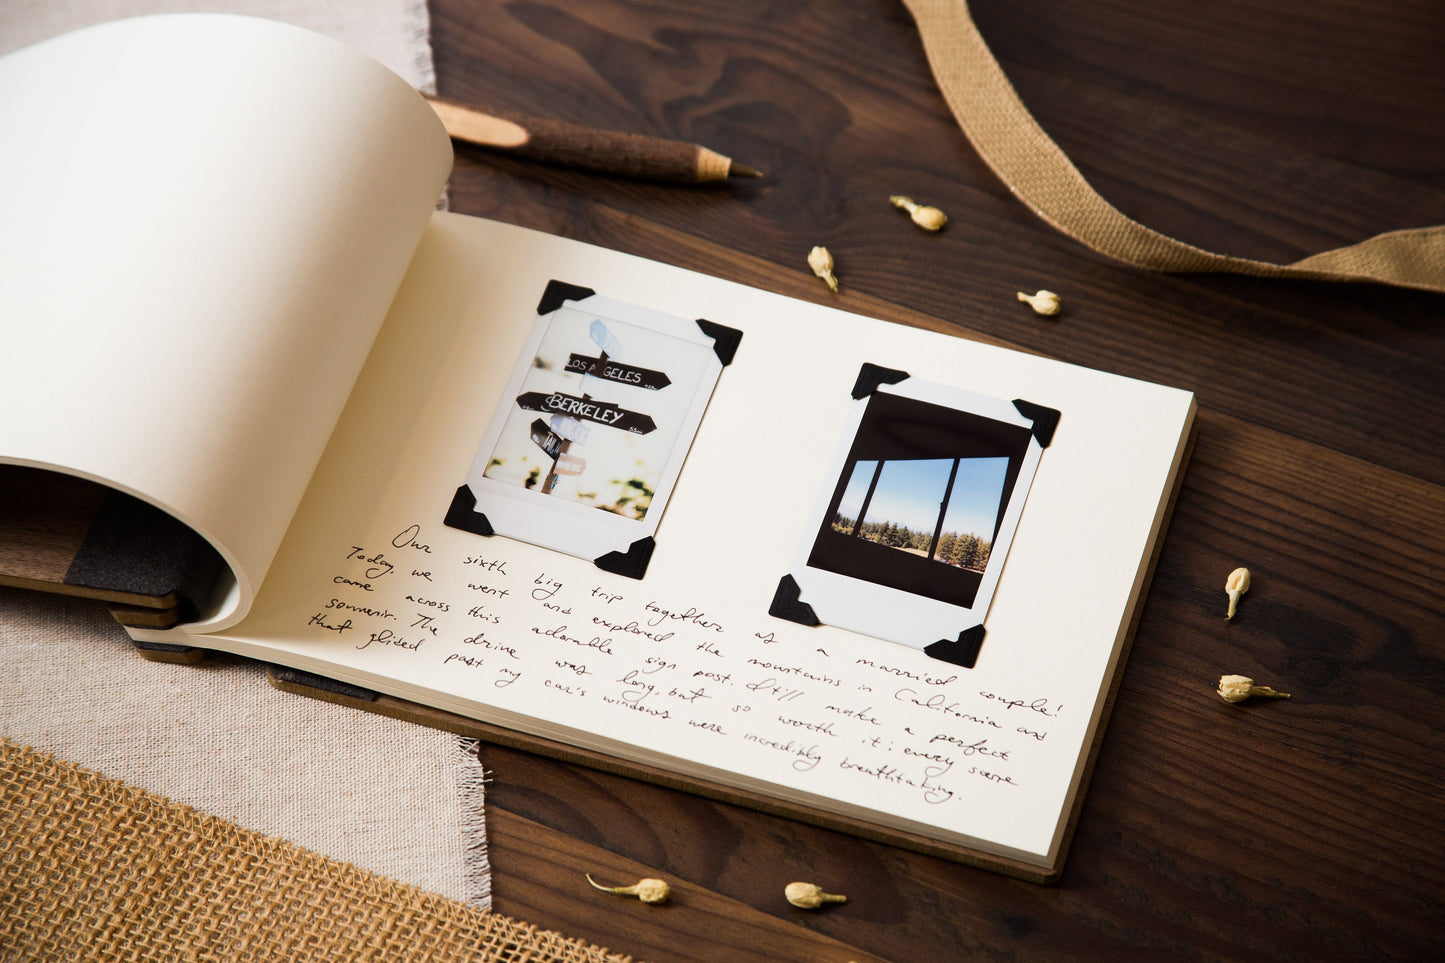 LOS ANGELES
BERKELEY
Our sixth big trip together as a married couple!
Today, we went and explored the mountains in California and
came across this adorable sign post. It'll make a perfect
souvenir. The drive was long, but so worth it: every scene
that glided past my car's windows were incredibly breathtaking.